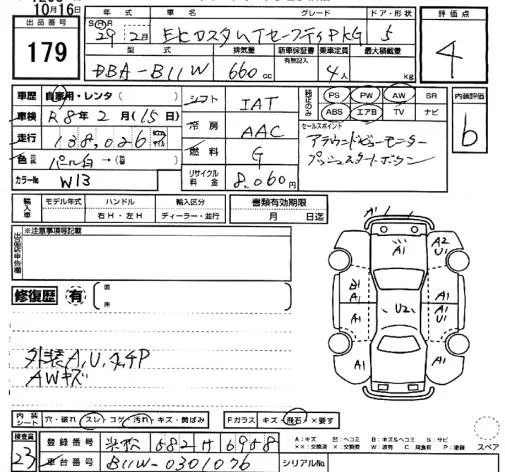 10月16日
出品番号
179
年 車名 グレード ドア・形状
29 2月 EKカスタムTセーフティPKG 5
型式 排気量 新車保証書 有無記入 乗車定員 最大積載量
DBA-B11W 660cc 4人 kg
評価点
4
内装評価
b
車歴 自家用・レンタ( )
車検 R8年2月(15日)
走行 138,026
色 パール白 → (色 )
カラーNo W13
シフト IAT
冷房 AAC
燃料 G
リサイクル料金 8,060円
純正のみ PS PW AW SR
ABS エアB TV ナビ
セールスポイント
アラウンドビューモニター
プッシュスタートボタン
輸入車 モデル年式 ハンドル 輸入区分
右H・左H ディーラー・並行
書類有効期限
月 日迄
出品店申告欄 ※注意事項等記載
修復歴 有 箇所
外装A,U,ヌ,キP
AWキズ
A1
A1 A2
U1
B1 A1 A1
U2
A1 A1
U1
A1 A1
内装シート 穴・破れ スレ・コゲ 汚れ・キズ・黄ばみ Fガラス キズ・飛石・×要す
検査員
23
登録番号 682 け 6958
車台番号 B11W-0301076
シリアルNo.
A:キズ U:ヘコミ B:キズ&ヘコミ S:サビ
××:交換済 ×:要交換 W:波有 C:腐食有 P:塗装
スペア